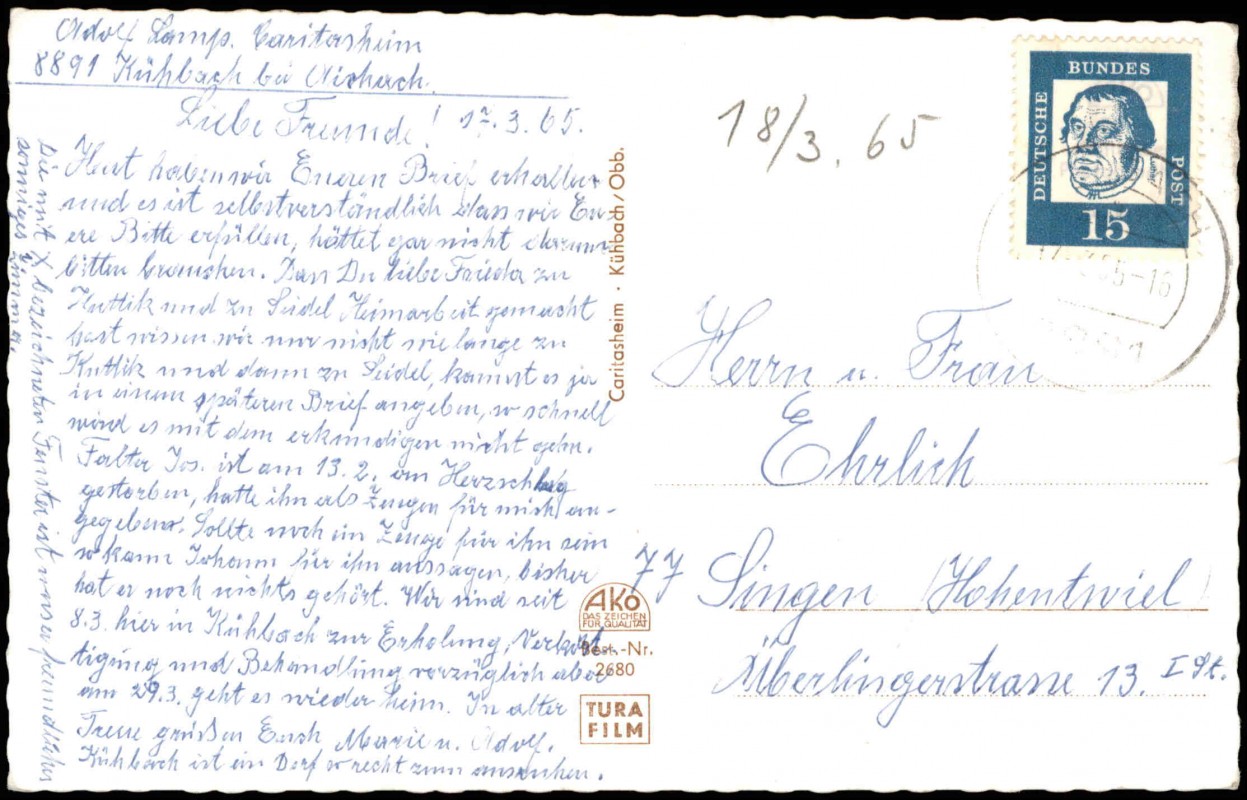 Adolf Lamp. Caritasheim
8891 Kühbach bei Aichach.
Liebe Freunde! 17.3.65.
Heut haben wir Eueren Brief erhalten
und es ist selbstverständlich dass wir Eu
ere Bitte erfüllen, hättet gar nicht darum
bitten brauchen. Dass Du liebe Frieda zu
Kuttik und zu Seidel Heimarbeit gemacht
hast wissen wir nur nicht wie lange zu
Kuttik und dann zu Seidel, kannst es ja
in einem späteren Brief angeben, so schnell
wird es mit dem erkundigen nicht gehn.
Falter Jos. ist am 13.2. an Herzschlag
gestorben, hatte ihn als Zeugen für mich an-
gegeben. Sollte noch ein Zeuge für ihn sein
so kann Johann für ihn aussagen, bisher
hat er noch nichts gehört. Wir sind seit
8.3. hier in Kühbach zur Erholung, Verköst
tigung und Behandlung vorzüglich aber
am 29.3. geht es wieder heim. In alter
Treue grüßen Euch Marie u. Adolf.
Kühbach ist ein Dorf so recht zum ausruhen.
Die mit X bezeichneten Fenster ist unser freundliches
sonniges Zimmer.
Caritasheim · Kühbach/Obb.
AKO
DAS ZEICHEN
FÜR QUALITÄT
Best.-Nr.
2680
TURA
FILM
18/3. 65
DEUTSCHE
BUNDES
POST
Luther
15
17.3.65-16
Herrn u. Frau
Ehrlich
77 Singen (Hohentwiel)
Überlingerstrasse 13. I St.